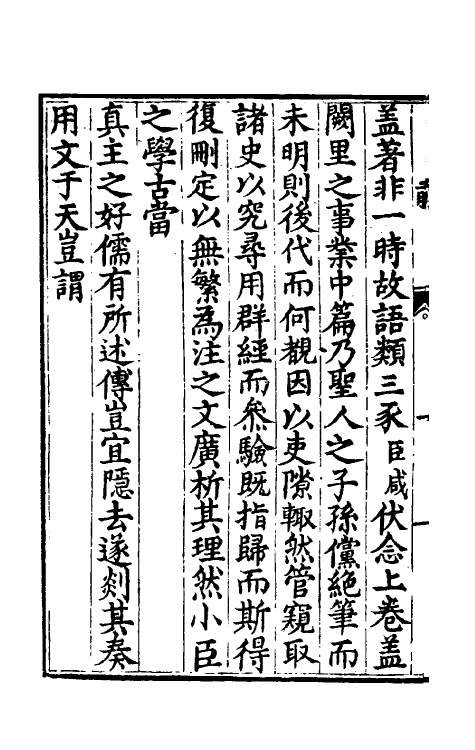 盖著非一時故語類三豕臣咸伏念上卷盖
闕里之事業中篇乃聖人之子孫儻絶筆而
未明則後代而何覩因以吏隙輙然管窺取
諸史以究尋用群經而叅驗既指歸而斯得
復刪定以無繁爲注之文廣析其理然小臣
之學古當
真主之好儒有所述傳豈宜隱去遂剡其奏
用文于天豈謂